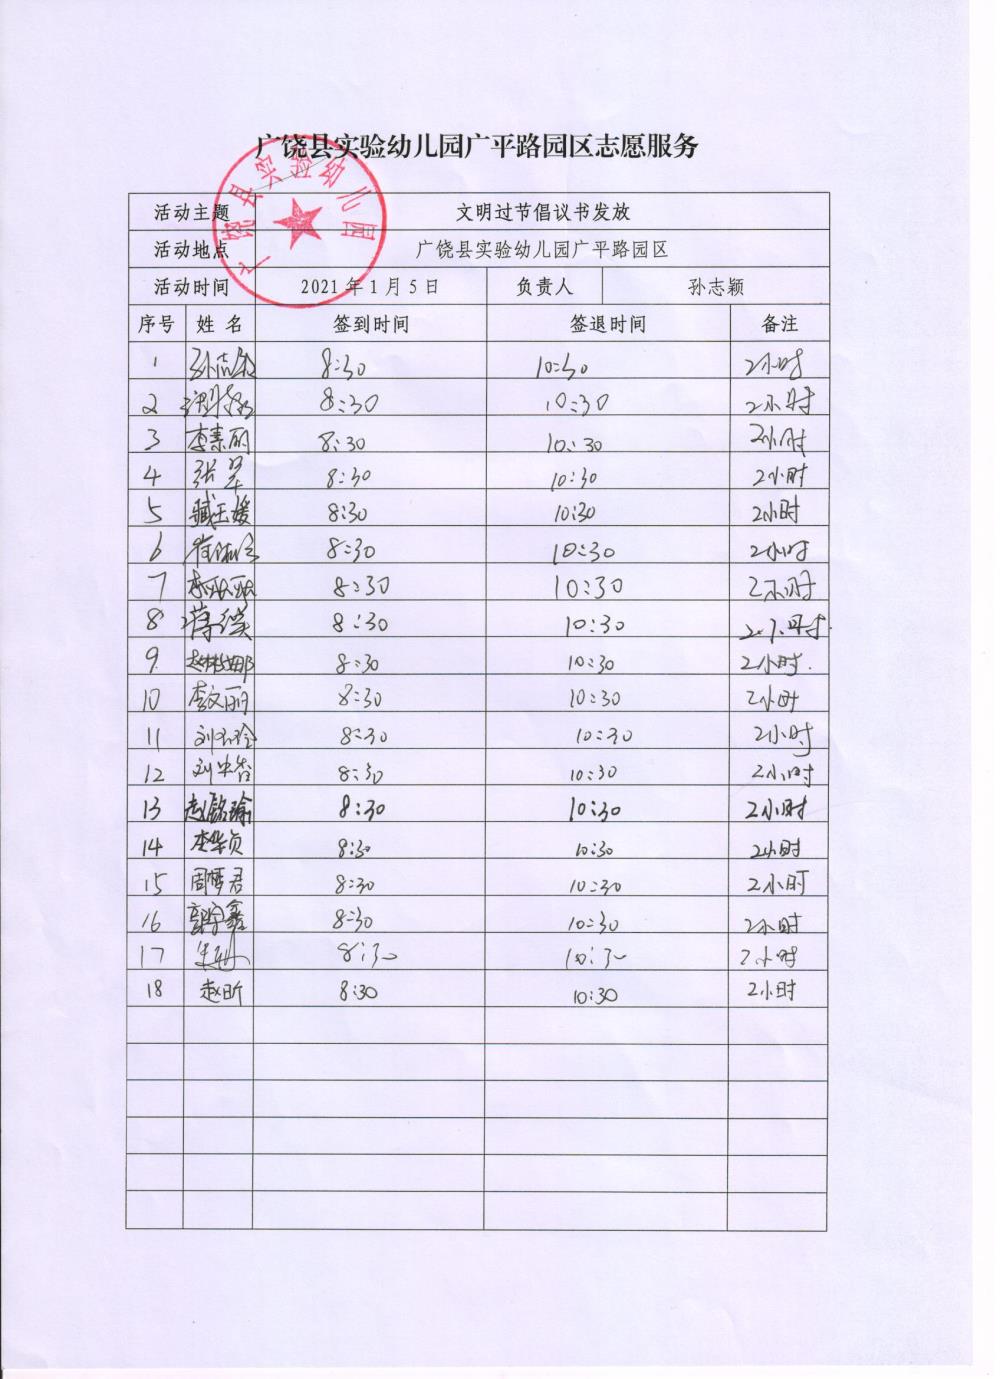 广饶县实验幼儿园广平路园区志愿服务
广饶县实验幼儿园
活动主题 文明过节倡议书发放
活动地点 广饶县实验幼儿园广平路园区
活动时间 2021 年 1 月 5 日 负责人 孙志颖
序号 姓 名 签到时间 签退时间 备注
1 8:30 10:30 2小时
2 8:30 10:30 2小时
3 李素丽 8:30 10:30 2小时
4 张翠 8:30 10:30 2小时
5 臧玉媛 8:30 10:30 2小时
6 8:30 10:30 2小时
7 8:30 10:30 2小时
8 8:30 10:30 2小时.
9 赵彬娜 8:30 10:30 2小时.
10 李文丽 8:30 10:30 2小时
11 8:30 10:30 2小时
12 8:30 10:30 2小时
13 赵铭瑜 8:30 10:30 2小时
14 李华贞 8:30 10:30 2小时
15 周梦君 8:30 10:30 2小时
16 8:30 10:30 2小时
17 8:30 10:30 2小时
18 赵昕 8:30 10:30 2小时